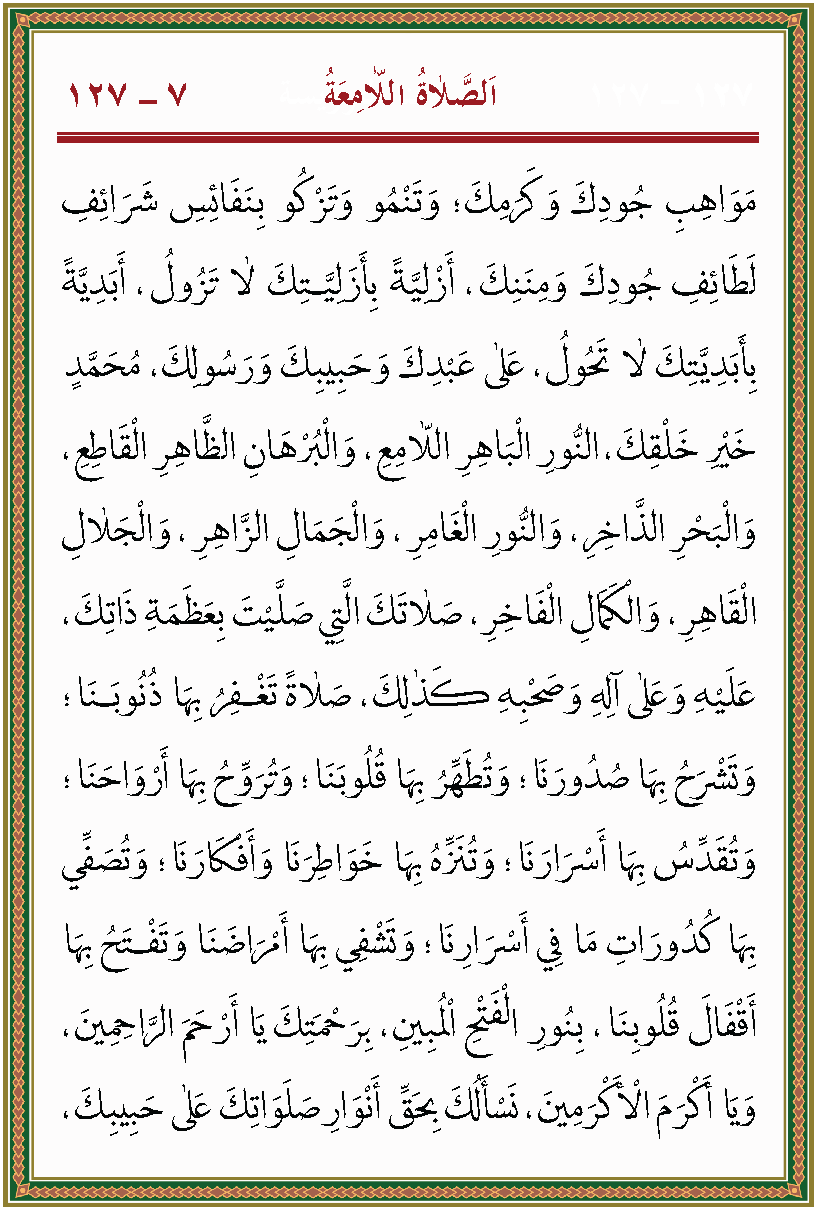 اَلصَّلَاةُ اللَّامِعَةُ ٧ – ١٢٧
مَوَاهِبِ جُودِكَ وَكَرَمِكَ؛ وَتَنْمُو وَتَزْكُو بِنَفَائِسِ شَرَائِفِ
لَطَائِفِ جُودِكَ وَمِنَنِكَ، أَزَلِيَّةً بِأَزَلِيَّتِكَ لَا تَزُولُ، أَبَدِيَّةً
بِأَبَدِيَّتِكَ لَا تَحُولُ، عَلَى عَبْدِكَ وَحَبِيبِكَ وَرَسُولِكَ، مُحَمَّدٍ
خَيْرِ خَلْقِكَ، النُّورِ الْبَاهِرِ اللَّامِعِ، وَالْبُرْهَانِ الظَّاهِرِ الْقَاطِعِ،
وَالْبَحْرِ الذَّاخِرِ، وَالنُّورِ الْغَامِرِ، وَالْجَمَالِ الزَّاهِرِ، وَالْجَلَالِ
الْقَاهِرِ، وَالْكَمَالِ الْفَاخِرِ، صَلَاتَكَ الَّتِي صَلَّيْتَ بِعَظَمَةِ ذَاتِكَ،
عَلَيْهِ وَعَلَى آلِهِ وَصَحْبِهِ كَذَلِكَ، صَلَاةً تَغْفِرُ بِهَا ذُنُوبَنَا؛
وَتَشْرَحُ بِهَا صُدُورَنَا؛ وَتُطَهِّرُ بِهَا قُلُوبَنَا؛ وَتُرَوِّحُ بِهَا أَرْوَاحَنَا؛
وَتُقَدِّسُ بِهَا أَسْرَارَنَا؛ وَتُنَزِّهُ بِهَا خَوَاطِرَنَا وَأَفْكَارَنَا؛ وَتُصَفِّي
بِهَا كُدُورَاتِ مَا فِي أَسْرَارِنَا؛ وَتَشْفِي بِهَا أَمْرَاضَنَا وَتَفْتَحُ بِهَا
أَقْفَالَ قُلُوبِنَا، بِنُورِ الْفَتْحِ الْمُبِينِ، بِرَحْمَتِكَ يَا أَرْحَمَ الرَّاحِمِينَ،
وَيَا أَكْرَمَ الْأَكْرَمِينَ، نَسْأَلُكَ بِحَقِّ أَنْوَارِ صَلَوَاتِكَ عَلَى حَبِيبِكَ،